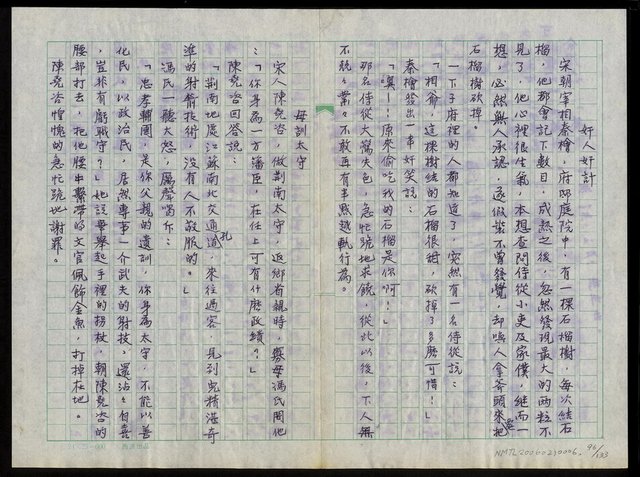 奸人奸計
宋朝宰相秦檜，府邸庭院中，有一棵石榴樹，每次結石
榴，他都會記下數目，成熟之後，忽然發現最大的兩粒不
見了，他心裡很生氣，本想查問侍從小吏及家僕，繼而一
想，必然無人承認，遂假裝不曾發覺，却喚人拿斧頭來把這
石榴樹砍掉。
一下子府裡的人都知道了，突然有一名侍從說：
「相爺，這棵樹結的石榴很甜，砍掉了多麼可惜！」
秦檜發出一串奸笑說：
「噢！—原來偷吃我的石榴是你啊！」
那名侍從大驚失色，急忙跪地求饒，從此以後，下人無
不兢兢業業不敢再有半點越軌行為。
母訓太守
宋人陳堯咨，做荊南太守，返鄉省親時，繫母馮氏問他
：「你身為一方藩臣，在任上可有什麼政績？」
陳堯咨回答說：
「荊南地處江蘇南北交通孔道，來往過客，見到兒精湛奇
準的射箭技術，沒有人不敬服的。」
馮氏一聽大怒，厲聲當斥：
「忠孝輔國，是你父親的遺訓，你身為太守，不能以善
化民，以政治民，居然專事一介武夫的射技，還沾沾自喜
，豈非有虧職守？」她說畢舉起手裡的拐杖，朝陳堯咨的
腰部打去，把他腰中繫帶的文官佩飾金魚，打掉在地。
陳堯咨惶愧的急忙跪地謝罪。
94/133
NMTL20060210006